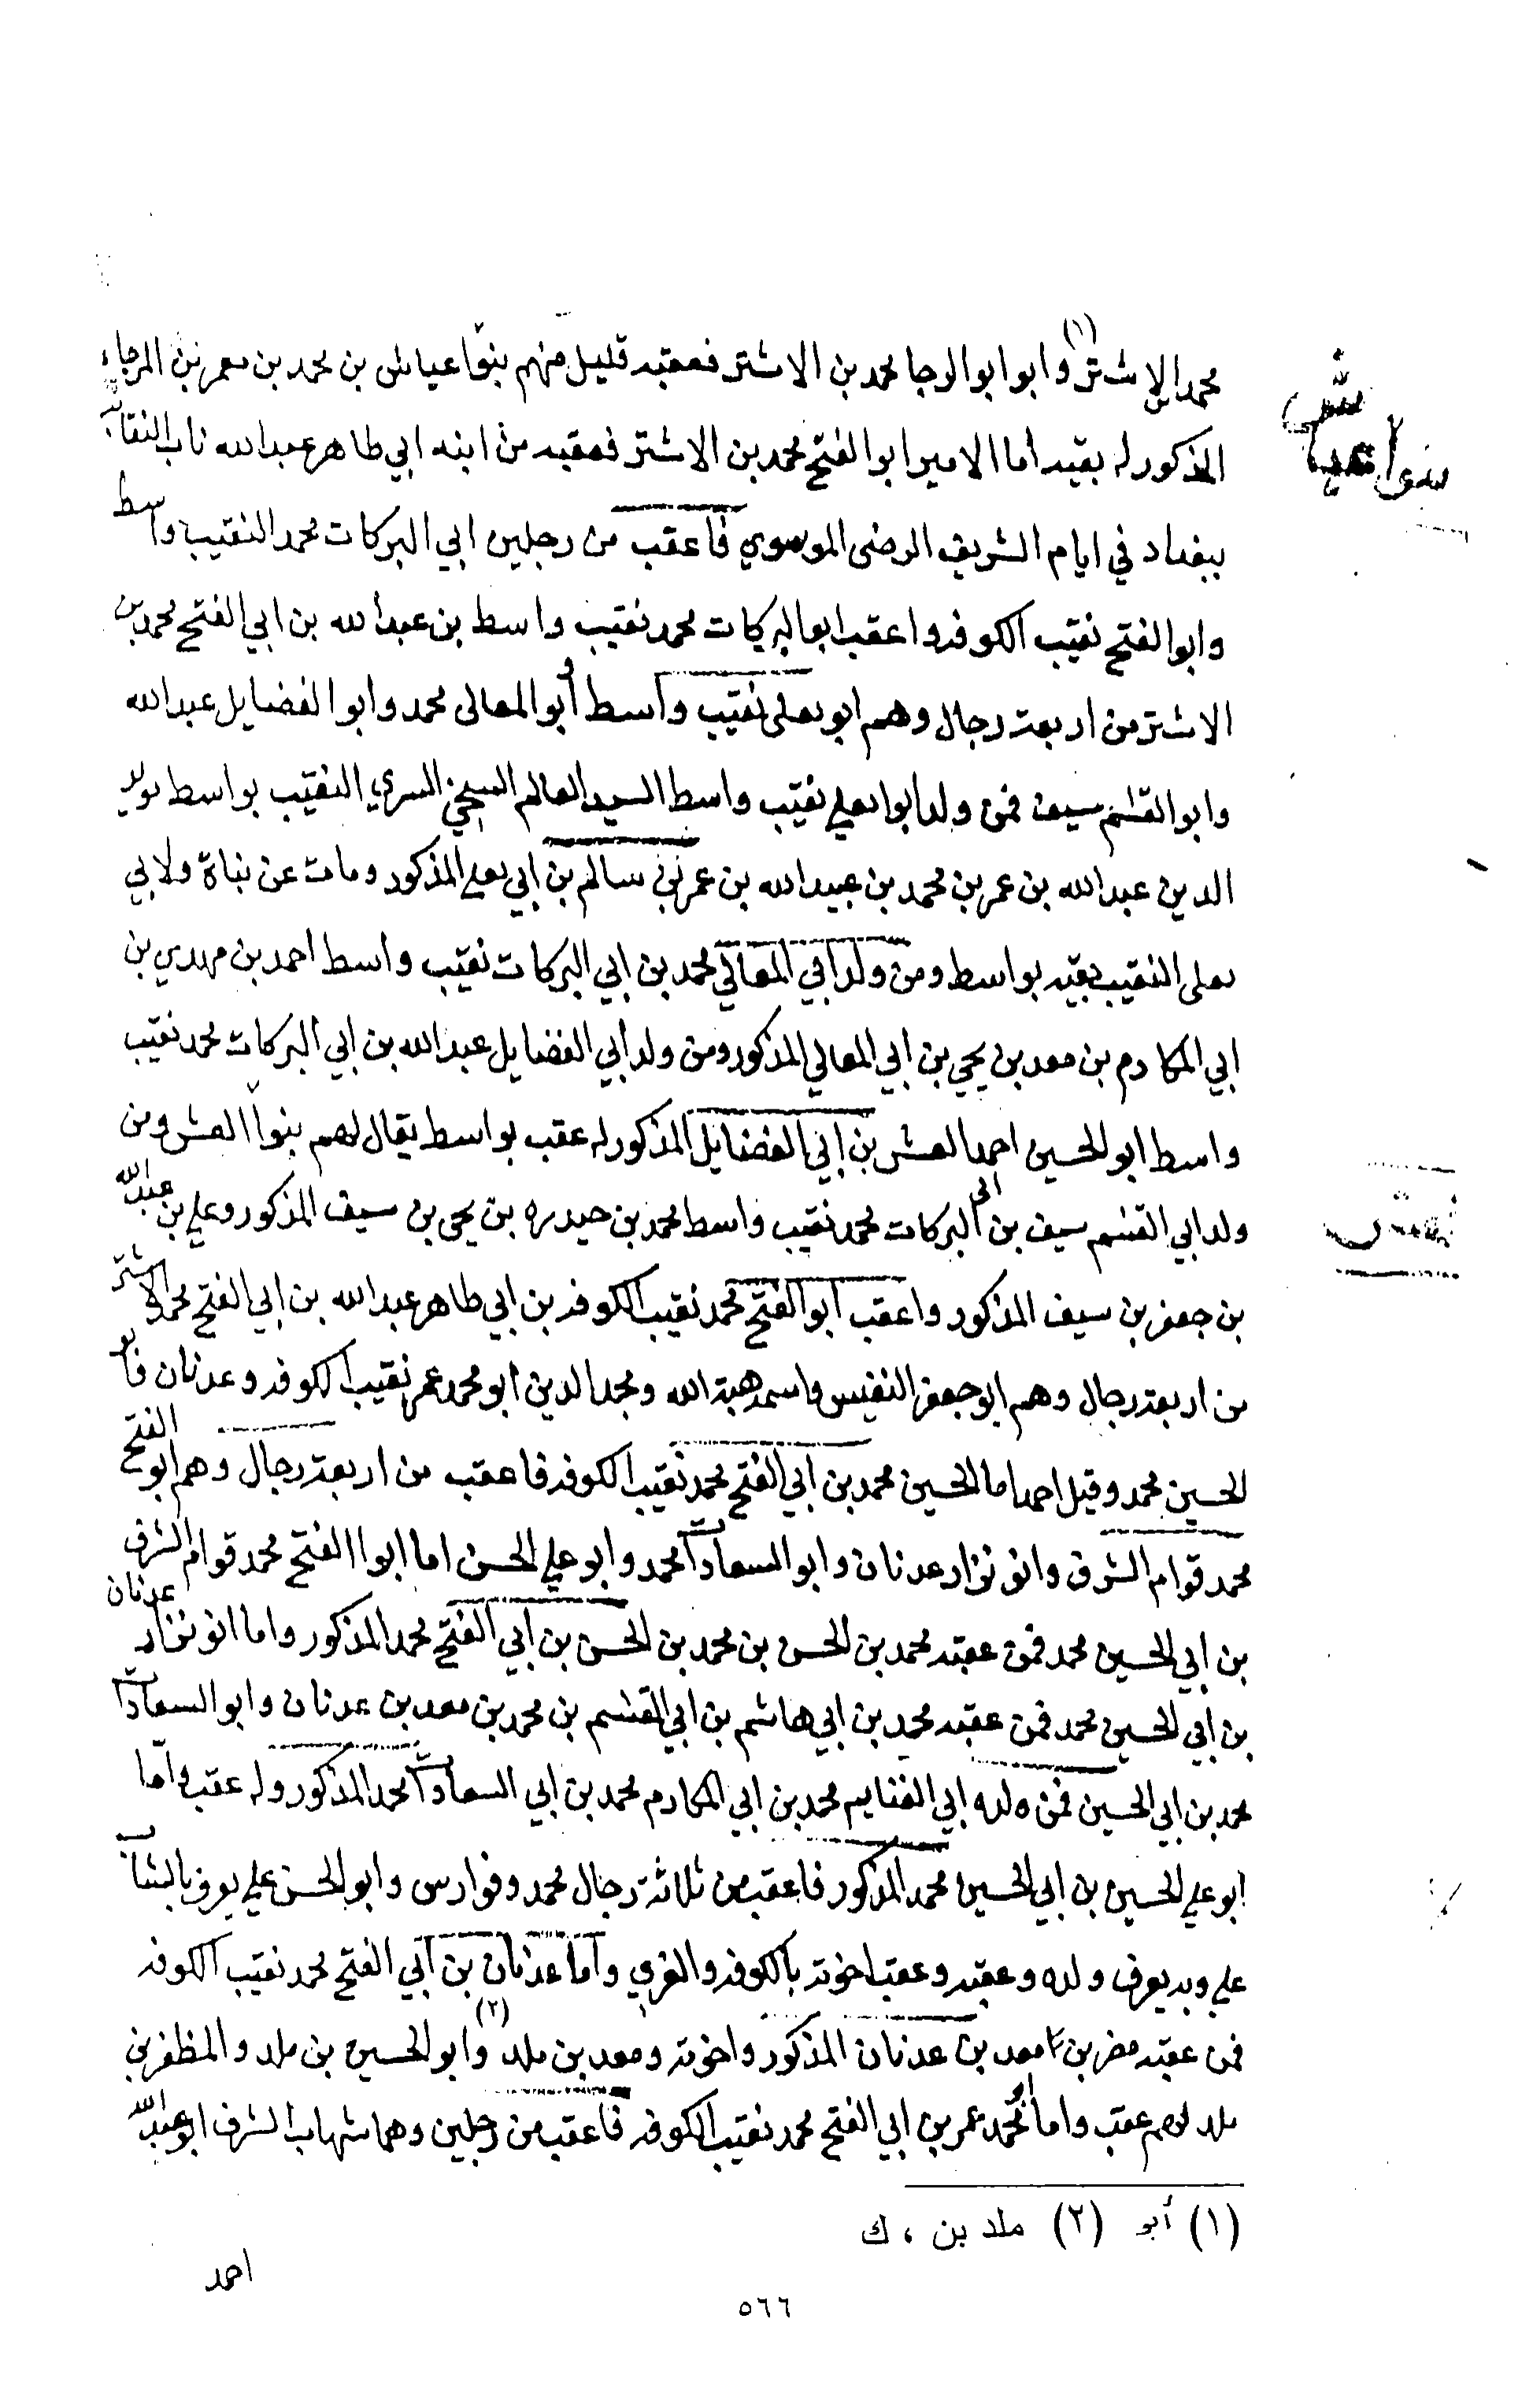 محمد الاشتر (١) وابو ابو الرجا محمد بن الاشتر فعقبه قليل منهم بنوا عياش بن محمد بن معمر بن ابي الرجاء
بنوا عياش
المذكور له بقيه اما الامير ابو الفتح محمد بن الاشتر فعقبه من ابنه ابي طاهر عبدالله ناب النقابه
ببغداد في ايام الشريف الرضى الموسوي فاعقب من رجلين ابي البركات محمد النقيب واسط
وابو الفتح نقيب الكوفه واعقب ابو البركات محمد نقيب واسط بن عبدالله بن ابي الفتح محمد بن
الاشتر من اربعة رجال وهم ابو يعلى نقيب واسط وابو المعالى محمد وابو الفضايل عبدالله
وابو القسم سيف فمن ولد ابو يعلي نقيب واسط السيد العالم السري النقيب بواسط مويد
الدين عبدالله بن عمر بن محمد بن عبيدالله بن عمر بن سالم بن ابي يعلى المذكور ومات عن بناة ولابي
يعلى النقيب بقيه بواسط ومن ولد ابي المعالي محمد بن ابي البركات نقيب واسط احمد بن مهدي بن
ابي المكارم بن معد بن يحي بن ابي المعالي المذكور ومن ولد ابي الفضايل عبدالله بن ابي البركات محمد نقيب
واسط ابو الحسين احمد العش بن ابي الفضايل المذكور له عقب بواسط يقال لهم بنوا العش ومن
ولد ابي القسم سيف بن ابي البركات محمد نقيب واسط محمد بن حيدره بن يحي بن سيف المذكور وعلي بن عبدالله
بن جعفر بن سيف المذكور واعقب ابو الفتح محمد نقيب الكوفه بن ابي طاهر عبدالله بن ابي الفتح محمد الاشتر
من اربعة رجال وهم ابو جعفر النفيس واسمه هبة الله ومجد الدين ابو محمد عمر نقيب الكوفه وعدنان فابو
الحسين محمد وقيل احمد اما الحسين محمد بن ابي الفتح محمد نقيب الكوفه فاعقب من اربعة رجال وهم ابو الفتح
محمد قوام الشرف وابو نزار عدنان وابو السعادات محمد وابو علي الحسن اما ابوا الفتح محمد قوام الشرف
بن ابي الحسين محمد فمن عقبه محمد بن الحسن بن محمد بن الحسن بن ابي الفتح محمد المذكور واما ابو نزار عدنان
بن ابي الحسين محمد فمن عقبه محمد بن ابي هاشم بن ابي القسم بن محمد بن معد بن عدنان وابو السعادات
محمد بن ابي الحسين فمن ولده ابي الغنايم محمد بن ابي المكارم محمد بن ابي السعادات محمد المذكور وله عقب واما
ابو علي الحسين بن ابي الحسين محمد المذكور فاعقب من ثلاثة رجال محمد وفوارس وابو الحسن علي يعرف
علي وبه يعرف ولده وعقبه وعقب اخوته بالكوفه والغري واما عدنان بن ابي الفتح محمد نقيب الكوفه
فمن عقبه مضر بن معد بن عدنان المذكور واخوته ومعد بن ملد (٢) وابو الحسين بن ملد والمظفر بن
ملد لهم عقب واما ابو محمد عمر بن ابي الفتح محمد نقيب الكوفه فاعقب من رجلين وهما شهاب الشرف ابو عبدالله
(١) أبو (٢) ملد بن ، ك
احمد
٥٦٦